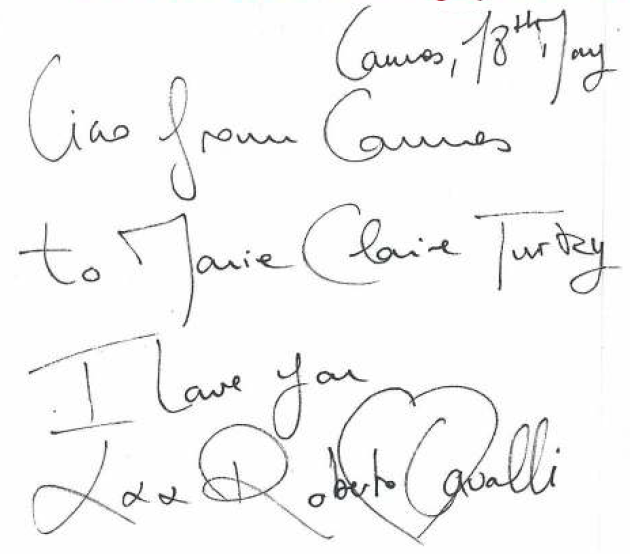 Cannes, 18th May
Ciao from Cannes
to Marie Claire Turkey
I love you
xxx Roberto Cavalli